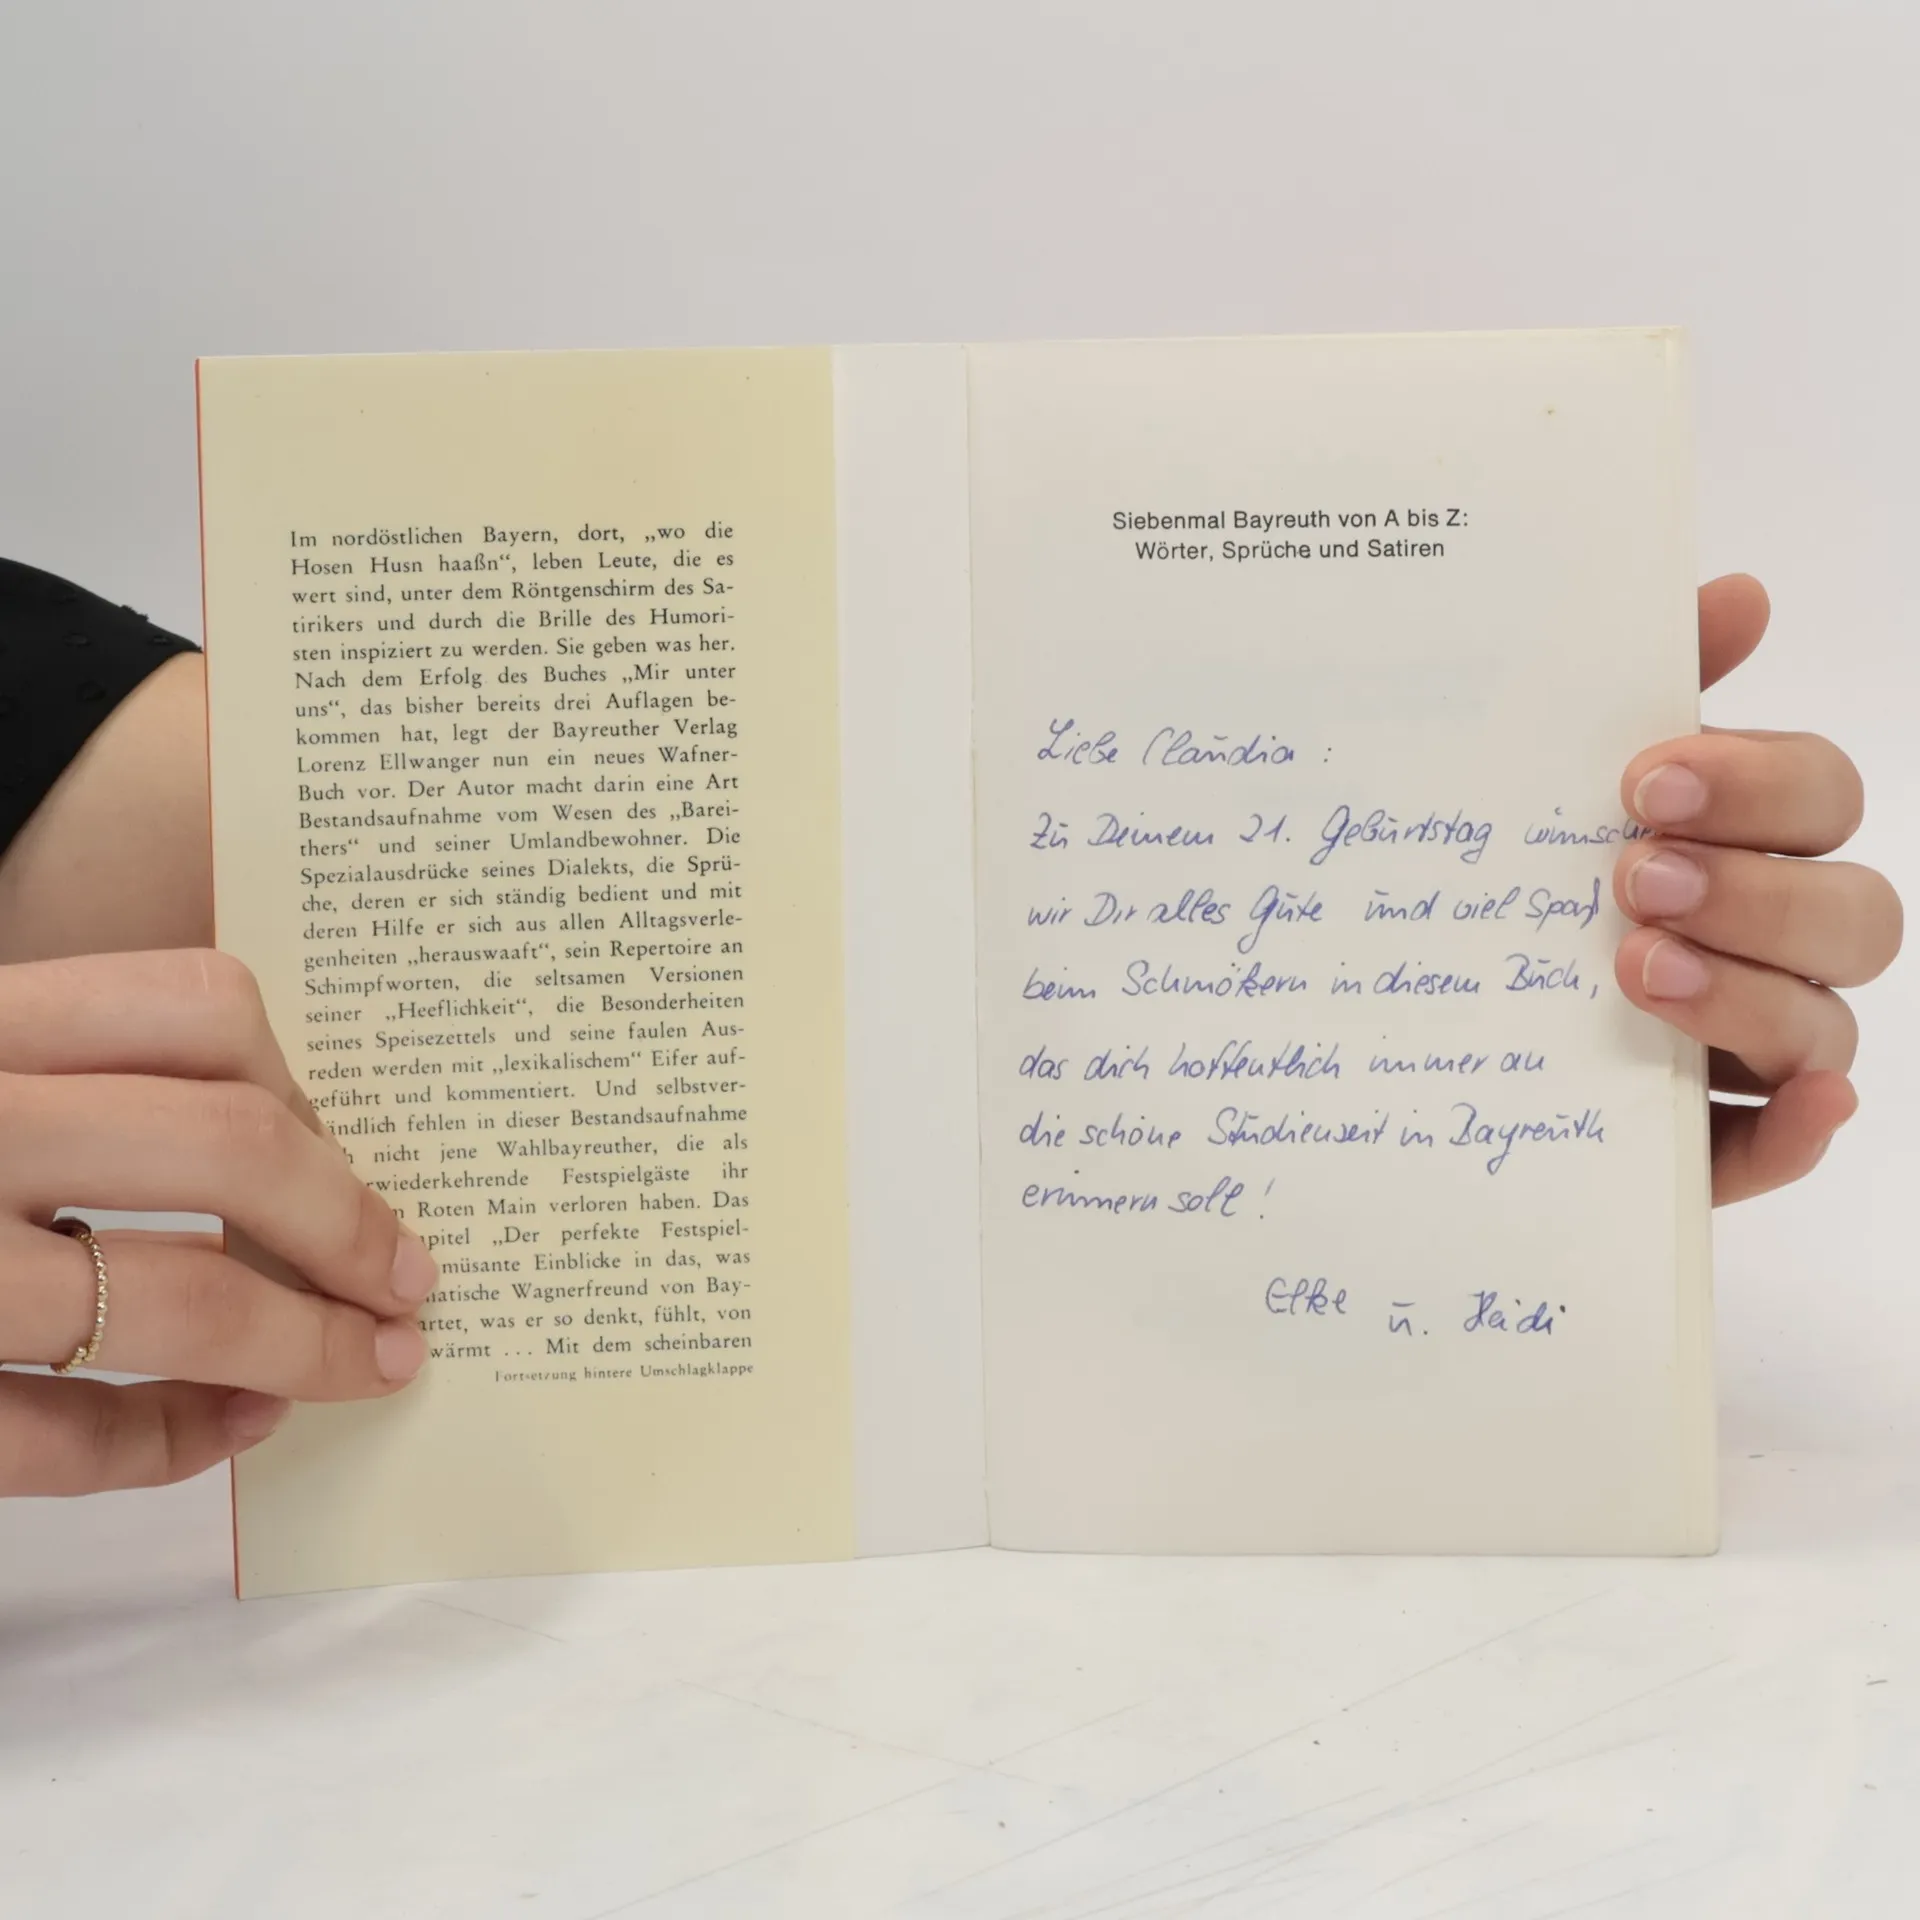 Im nordöstlichen Bayern, dort, „wo die
Hosen Husn haaßn“, leben Leute, die es
wert sind, unter dem Röntgenschirm des Sa-
tirikers und durch die Brille des Humori-
sten inspiziert zu werden. Sie geben was her.
Nach dem Erfolg des Buches „Mir unter
uns“, das bisher bereits drei Auflagen be-
kommen hat, legt der Bayreuther Verlag
Lorenz Ellwanger nun ein neues Wafner-
Buch vor. Der Autor macht darin eine Art
Bestandsaufnahme vom Wesen des „Barei-
thers“ und seiner Umlandbewohner. Die
Spezialausdrücke seines Dialekts, die Sprü-
che, deren er sich ständig bedient und mit
deren Hilfe er sich aus allen Alltagsverle-
genheiten „herauswaaft“, sein Repertoire an
Schimpfworten, die seltsamen Versionen
seiner „Heeflichkeit“, die Besonderheiten
seines Speisezettels und seine faulen Aus-
reden werden mit „lexikalischem“ Eifer auf-
geführt und kommentiert. Und selbstver-
ändlich fehlen in dieser Bestandsaufnahme
h nicht jene Wahlbayreuther, die als
rwiederkehrende Festspielgäste ihr
n Roten Main verloren haben. Das
pitel „Der perfekte Festspiel-
müsante Einblicke in das, was
natische Wagnerfreund von Bay-
artet, was er so denkt, fühlt, von
wärmt ... Mit dem scheinbaren
Fortsetzung hintere Umschlagklappe
Siebenmal Bayreuth von A bis Z:
Wörter, Sprüche und Satiren
Liebe Claudia :
Zu Deinem 21. Geburtstag wünsch
wir Dir alles Gute und viel Spaß
beim Schmökern in diesem Buch,
das dich hoffentlich immer an
die schöne Studienzeit in Bayreuth
erinnern soll !
Elke u. Heidi